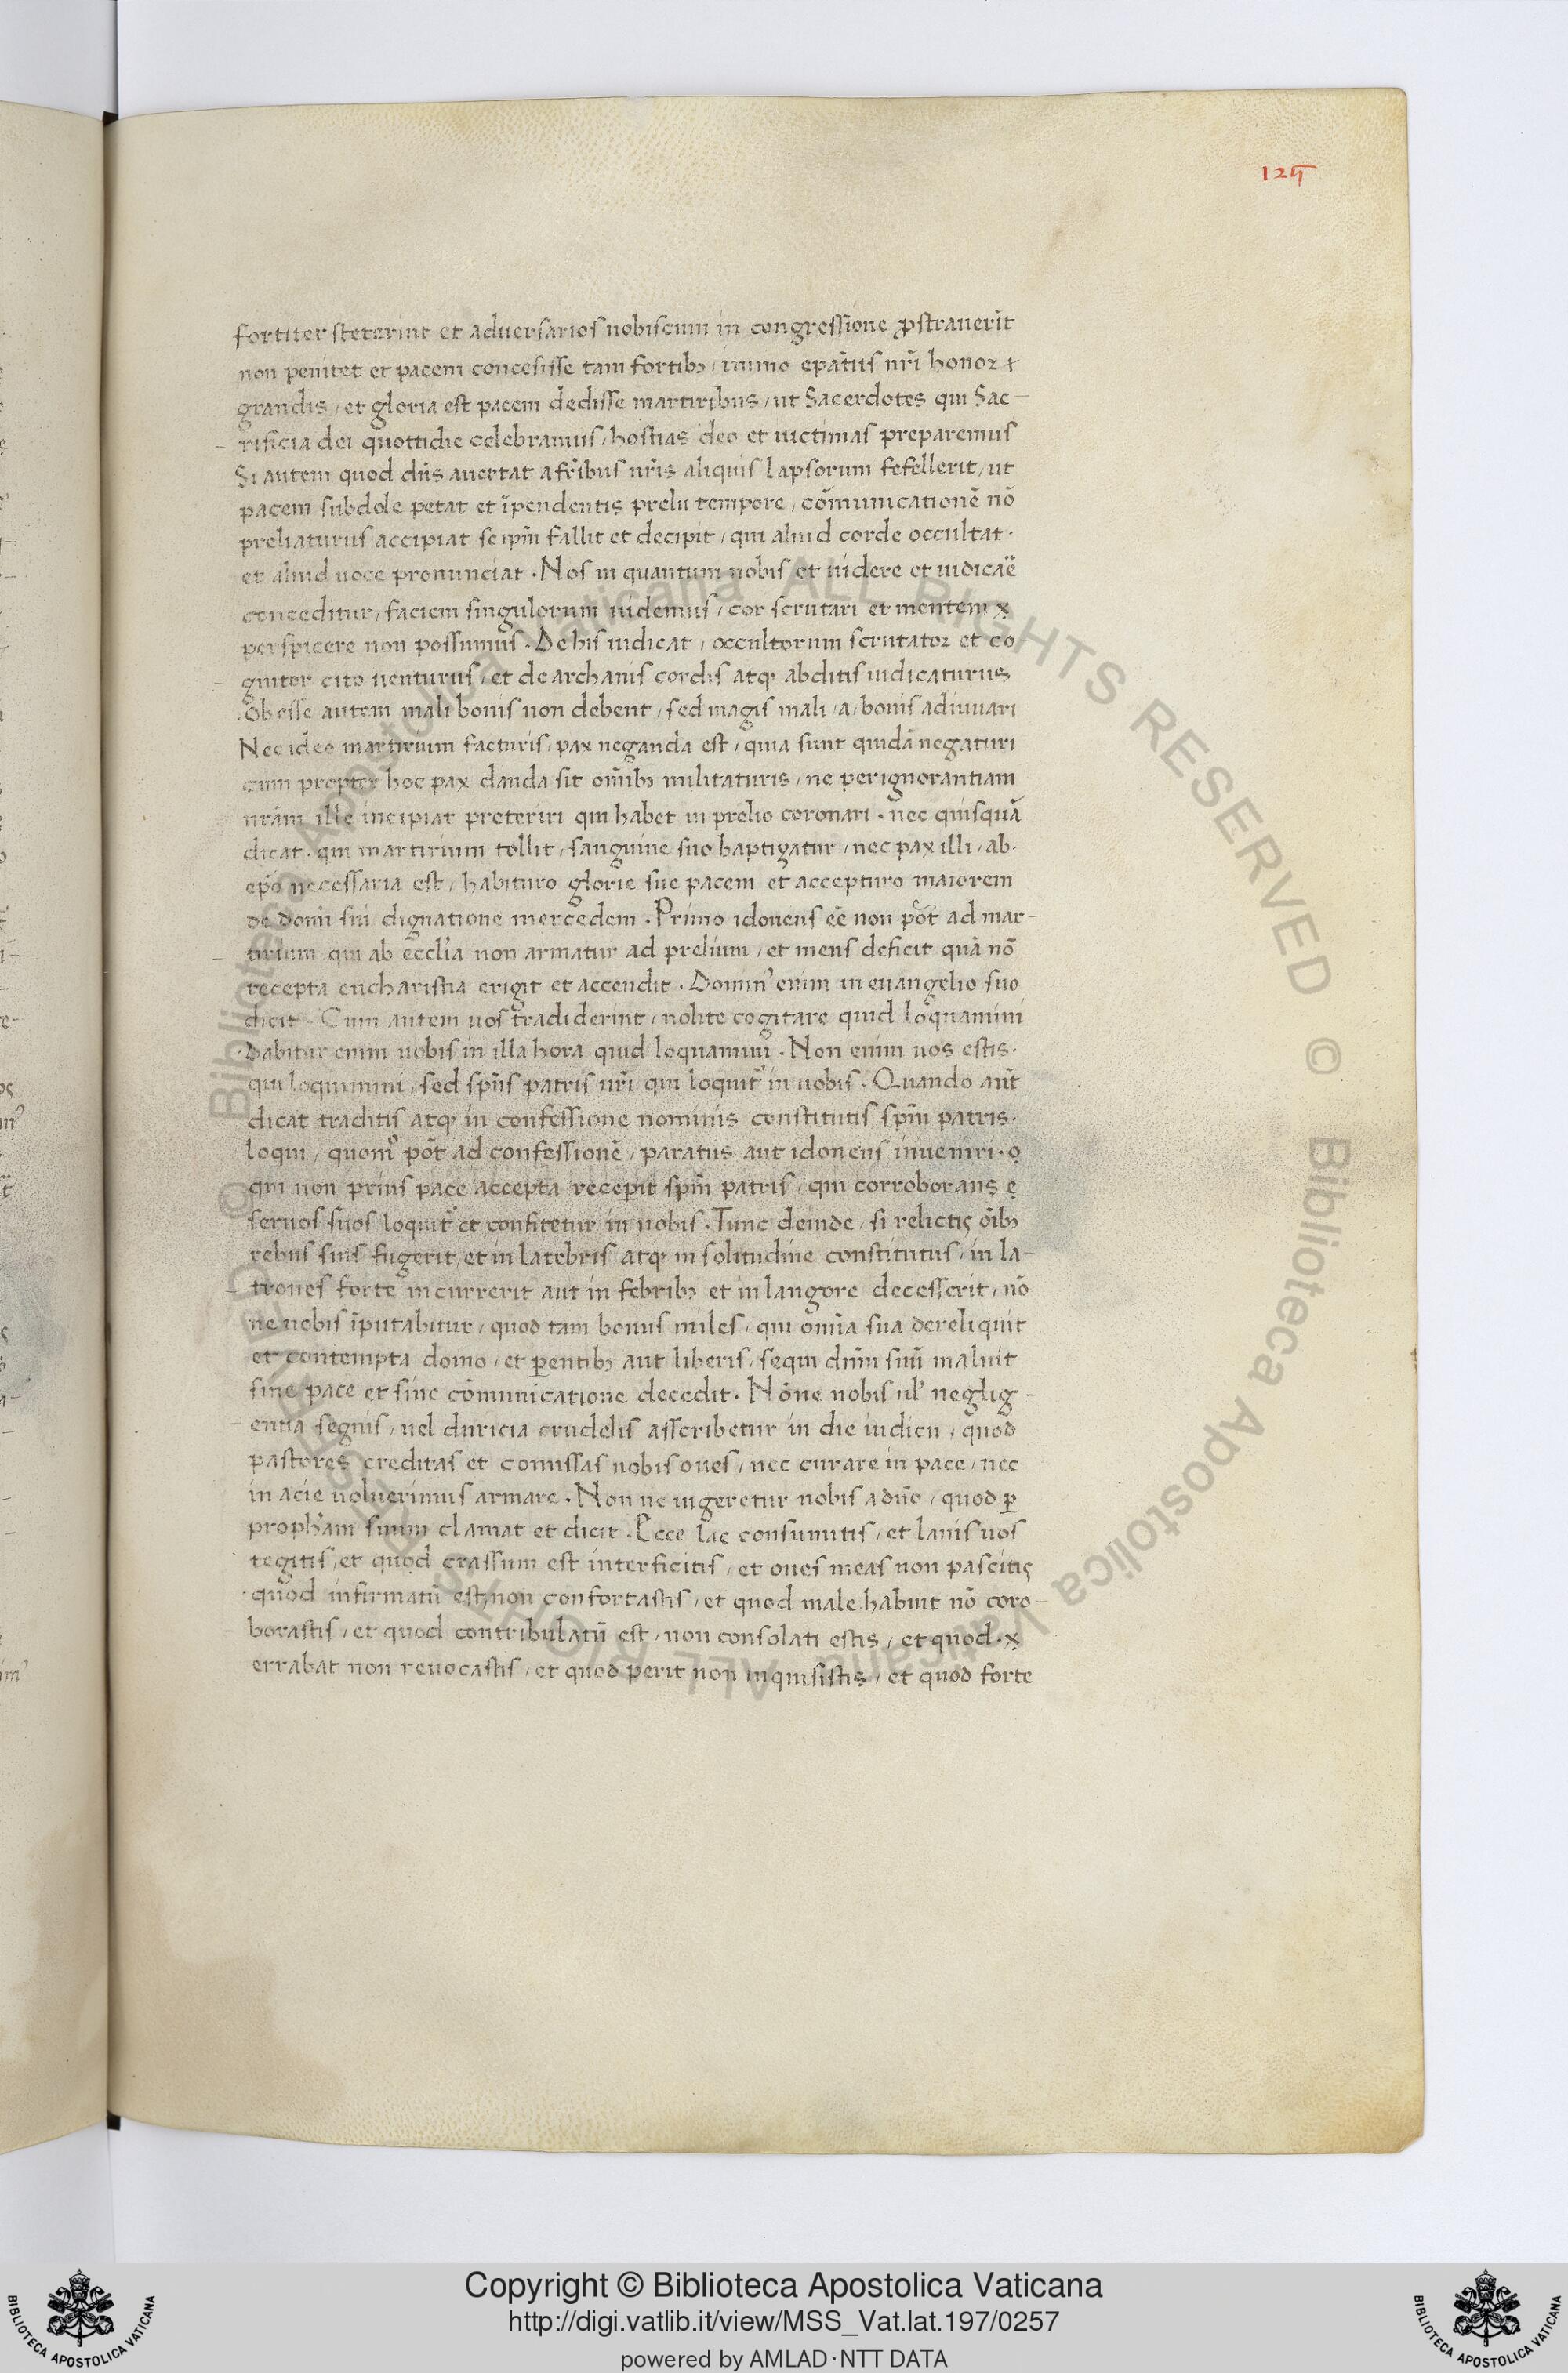 125
fortiter steterint et aduersarios nobiscum in congressione ꝓstrauerīt
non penitet et pacem concesisse tam fortibꝫ / immo epat̄us nr̄i honoꝛ
grandis / et gloria est pacem dedisse martiribus / ut Sacerdotes qui Sac-
rificia dei quottidie celebramus / hostias deo et uictimas preparemus
Si autem quod dn̄s auertat a fr̄ibus nr̄is aliquis lapsorum fefellerit / ut
pacem subdole petat et īpendentis prelii tempore / cōmunicationē nō
preliaturus accipiat seipm̄ fallit et decipit / qui aliud corde occultat ·
et aliud uoce pronunciat · Nos in quantum nobis et uidere et iudicar̄e
conceditur / faciem singulorum uidemus / cor scrutari et mentem
perspicere non possumus · De his iudicat / occultorum scrutatoꝛ et co-
gnitor cito uenturus / et de archanis cordis atqꝫ abditis iudicaturus
Obesse autem mali bonis non debent / sed magis mali / a / bonis adiuuari
Nec ideo martirium facturis / pax neganda est / quia sunt quidā negaturi
cum propter hoc pax danda sit om̄ibꝫ militaturis / ne per ignorantiam
nrām ille incipiat preteriri qui habet in prelio coronari · nec quisquā
dicat · qui martirium tollit / sanguine suo baptizatur / nec pax illi / ab ·
ep̄o necessaria est / habituro glorie sue pacem et accepturo maiorem
de domī sui dignatione mercedem · Primo idoneus ēe non pōt ad mar-
tirium qui ab eccl̄ia non armatur ad prelium / et mens deficit quā nō
recepta eucharistia erigit et accendit · Dominꝰ enim in euangelio suo
dicit · Cum autem uos tradiderint / nolite cogitare quid loquamini
Dabitur enim uobis in illa hora quid loquamini · Non enim uos estis ·
qui loquimini / sed sp̄us patris ur̄i qui loquit᷑ in uobis · Quando aūt
dicat traditis atqꝫ in confessione nominis constitutis spm̄ patris ·
loqui / quomº pōt ad confessionē / paratus aut idoneus inueniri ·
qui non prius pace accepta receperit spm̄ patris / qui corroborans
seruos suos loquit᷑ et confitetur in nobis · Tunc deinde / si relictis ōibꝫ
rebus suis fugerit / et in latebris atqꝫ in solitudine constitutus / in la-
trones forte incurrerit aut in febribꝫ et in langore decesserit / nō
ne nobis īputabitur / quod tam bonus miles / qui om̄ia sua dereliquit
et contempta domo / et ꝑentibꝫ aut liberis / sequi dnm̄ suū maluit
sine pace et sine cōmunicatione decedit · Nōne nobis ul̉ neglig-
entia segnis / uel duricia crudelis asscribetur in die iudicii / quod
pastores creditas et comissas nobis oues / nec curare in pace / nec
in acie uoluerimus armare · Non ne ingeretur nobis a dn̄o / quod ꝑ
proph̄am suum clamat et dicit · Ecce lac consumitis / et lanis uos
tegitis / et quod crassum est interficitis / et oues meas non pascitis
quod infirmatū est / non confortastis / et quod male habuit nō coro-
borastis / et quod contribulatū est / non consolati estis / et quod ·
errabat non reuocastis / et quod perit non inquisistis / et quod forte
© Biblioteca Apostolica Vaticana ALL RIGHTS RESERVED © Biblioteca Apostolica Vaticana ALL RIGHTS RESERVED
Copyright © Biblioteca Apostolica Vaticana
http://digi.vatlib.it/view/MSS_Vat.lat.197/0257
powered by AMLAD·NTT DATA
BIBLIOTECA APOSTOLICA VATICANA
BIBLIOTECA APOSTOLICA VATICANA